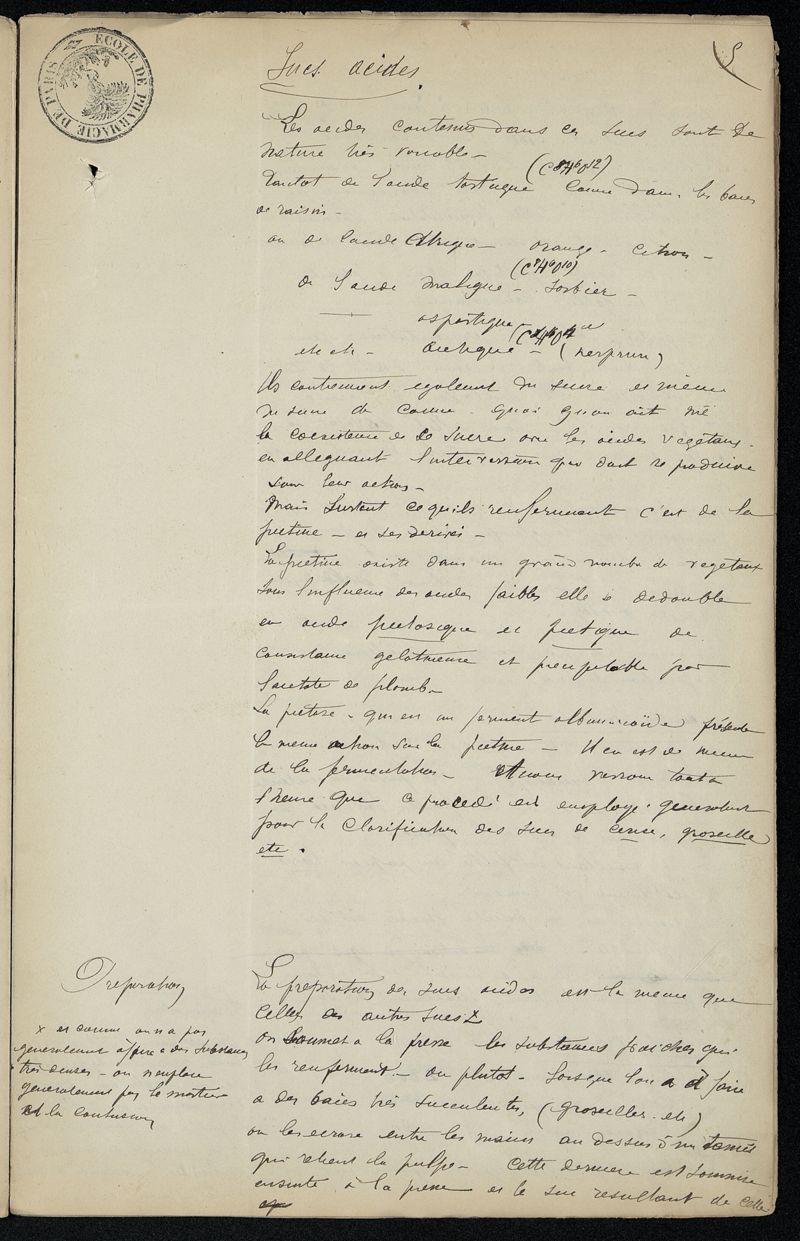 ECOLE DE PHARMACIE DE PARIS
5
Sucs acides.
Les acides contenus dans ces sucs sont de
nature très variable —
Tantot de l'acide tartrique (C8H6O12) comme dans les baies
de raisin —
ou de l'acide citrique — orange — citron —
de l'acide malique (C8H6O10) — sorbier —
— aspartique —
etc etc — acetique — (nerprun)
Ils contiennent egalement du sucre et même
du sucre de canne. quoi qu'on ait nié
la coexistence de ce sucre avec les acides vegetaux.
en alleguant l'interversion qui doit se produire
sous leur action —
Mais surtout ce qu'ils renferment c'est de la
pectine — et ses derivés —
La pectine existe dans un grand nombre de vegetaux
sous l'influence des acides faibles elle se dedouble
en acide pectosique et pectique de
consistance gelatineuse et precipitable par
l'acetate de plomb —
La pectase — qui est un ferment albuminoïde présente
la meme action sur la pectine — Il en est de meme
de la fermentation — et nous verrons tout a
l'heure que ce procédé est employé generalement
pour la clarification des sucs de cerise, groseille
etc.
Preparation
La preparation des sucs acides est la meme que
celles des autres sucs x
x et comme on n'a pas
generalement affaire a des substances
tres dures — on n'emploie
generalement pas le mortier
et la contusion
on soumet a la presse les substances fraiches qui
les renferment — ou plutot — lorsque l'on a à faire
a des baies très succulentes, (groseilles etc)
on les ecrase entre les mains au dessus d'un tamis
qui retient la pulpe — cette derniere est soumise
ensuite à la presse et le suc resultant de cette